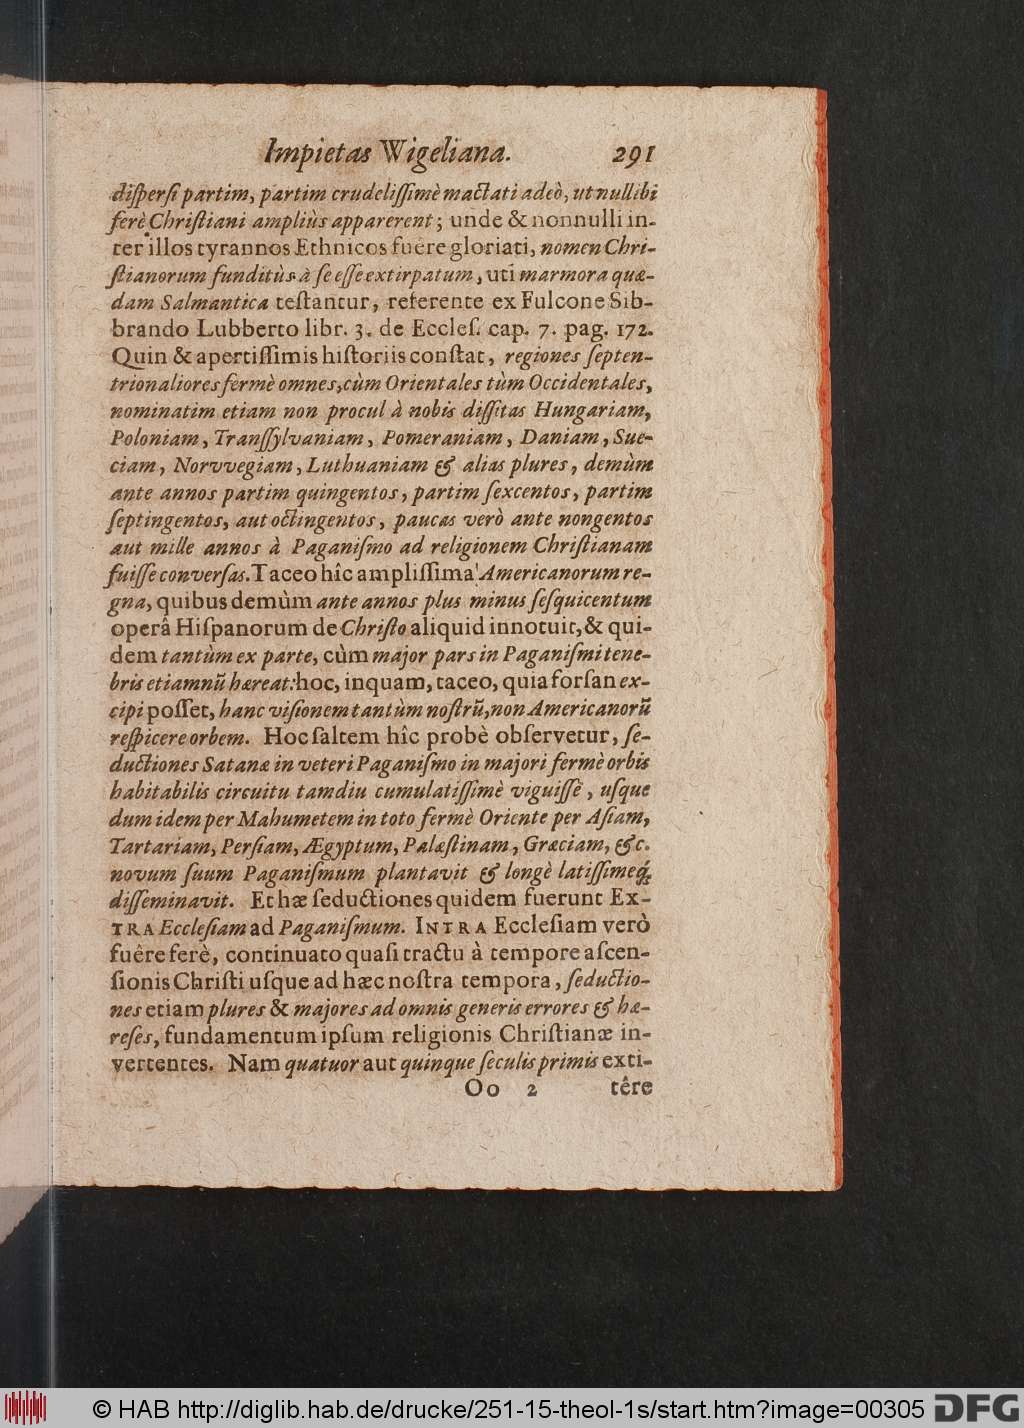 Impietas Wigeliana. 291
diſperſi partim, partim crudeliſſimè mactati adeò, ut nullibi
ferè Chriſtiani ampliùs apparerent; unde & nonnulli in-
ter illos tyrannos Ethnicos fuêre gloriati, nomen Chri-
ſtianorum funditùs à ſe eſſe extirpatum, uti marmora quæ-
dam Salmantica teſtantur, referente ex Fulcone Sib-
brando Lubberto libr. 3. de Eccleſ. cap. 7. pag. 172.
Quin & apertiſſimis hiſtoriis conſtat, regiones ſepten-
trionaliores fermè omnes, cùm Orientales tùm Occidentales,
nominatim etiam non procul à nobis diſſitas Hungariam,
Poloniam, Tranſſylvaniam, Pomeraniam, Daniam, Sue-
ciam, Norvvegiam, Luthuaniam & alias plures, demùm
ante annos partim quingentos, partim ſexcentos, partim
ſeptingentos, aut octingentos, paucas verò ante nongentos
aut mille annos à Paganiſmo ad religionem Chriſtianam
fuiſſe converſas. Taceo hîc ampliſſima Americanorum re-
gna, quibus demùm ante annos plus minus ſeſquicentum
operâ Hiſpanorum de Chriſto aliquid innotuit, & qui-
dem tantùm ex parte, cùm major pars in Paganiſmi tene-
bris etiamnũ hæreat: hoc, inquam, taceo, quia forſan ex-
cipi poſſet, hanc viſionem tantùm noſtrũ, non Americanorũ
reſpicere orbem. Hoc ſaltem hîc probè obſervetur, ſe-
ductiones Satanæ in veteri Paganiſmo in majori fermè orbis
habitabilis circuitu tamdiu cumulatiſſimè viguiſſe, uſque
dum idem per Mahumetem in toto fermè Oriente per Aſiam,
Tartariam, Perſiam, Ægyptum, Palæſtinam, Græciam, &c.
novum ſuum Paganiſmum plantavit & longè latiſſimeq́;
diſſeminavit. Et hæ ſeductiones quidem fuerunt Ex-
TRA Eccleſiam ad Paganiſmum. INTRA Eccleſiam verò
fuêre ferè, continuato quaſi tractu à tempore aſcen-
ſionis Chriſti uſque ad hæc noſtra tempora, ſeductio-
nes etiam plures & majores ad omnis generis errores & hæ-
reſes, fundamentum ipſum religionis Chriſtianæ in-
vertentes. Nam quatuor aut quinque ſeculis primis exti-
Oo 2 têre
© HAB http://diglib.hab.de/drucke/251-15-theol-1s/start.htm?image=00305 DFG